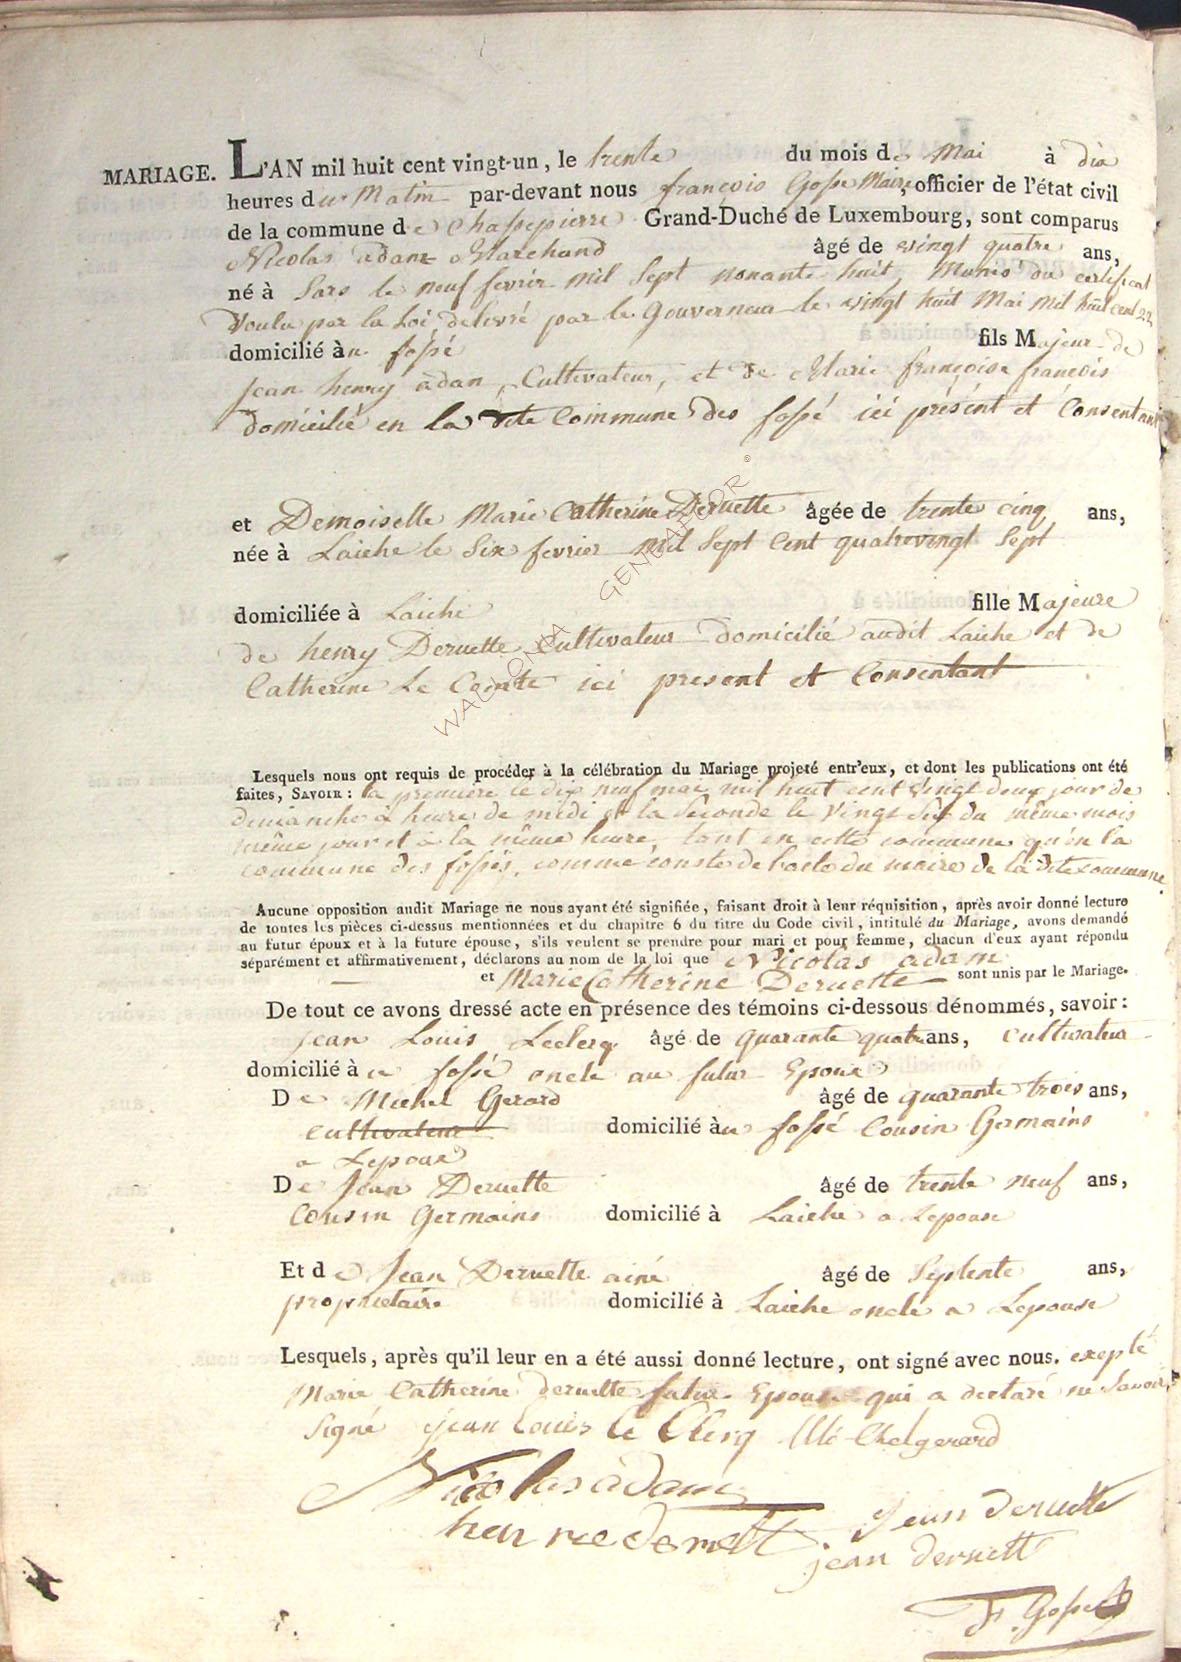 MARIAGE. L'AN mil huit cent vingt-un, le trente du mois de Mai à dix
heures du Matin par-devant nous françois Gosse Maire, officier de l'état civil
de la commune de Chassepierre Grand-Duché de Luxembourg, sont comparus
Nicolas adam Marchand âgé de vingt quatre ans,
né à Sars le neuf fevrir mil Sept nonante huit, Munis du certificat
voulu par la Loi, delivré par le Gouverneur le vingt huit Mai mil huit cent 22
domicilié au fossé fils Majeur de
jean henry adan, Cultivateur, et de Marie françoise françois
domicilié en la dite Commune des fossé ici présent et Consentant
et Demoiselle Marie Catherine Deruette âgée de trente cinq ans,
née à Laiche le Six fevrier mil Sept Cent quatrevingt Sept
domiciliée à Laiche fille Majeure
de henry Deruette Cultivateur domicilié audit Laiche et de
Catherine Le Comte ici present et Consentant
Lesquels nous ont requis de procéder à la célébration du Mariage projeté entr'eux, et dont les publications ont été
faites, SAVOIR : la première le dix neuf mai mil huit cent vingt deux jour de
dimanche à heure de midi et la seconde le vingt six du même mois
même jour et à la même heure, tant en cette commune qu'en la
commune des fossés, comme conste de l'acte du maire de la dite commune.
Aucune opposition audit Mariage ne nous ayant été signifiée, faisant droit à leur réquisition, après avoir donné lecture
de toutes les pièces ci-dessus mentionnées et du chapitre 6 du titre du Code civil, intitulé du Mariage, avons demandé
au futur époux et à la future épouse, s'ils veulent se prendre pour mari et pour femme, chacun d'eux ayant répondu
séparément et affirmativement, déclarons au nom de la loi que Nicolas adam
et Marie Catherine Deruette sont unis par le Mariage.
De tout ce avons dressé acte en présence des témoins ci-dessous dénommés, savoir :
jean Louis Leclerq âgé de quarante quatre ans, cultivateur
domicilié à a fossé oncle au futur Epoux
De Michel Gerard âgé de quarante trois ans,
cultivateur domicilié au fossé Cousin Germains
a Lepoux
De Jean Deruette âgé de trente neuf ans,
Cousin Germains domicilié à Laiche a Lepouse
Et de Jean Deruette ainé âgé de Septente ans,
propriétaire domicilié à Laiche oncle a Lepouse
Lesquels, après qu'il leur en a été aussi donné lecture, ont signé avec nous. exepté
Marie Catherine deruette future Epouse qui a declaré ne Savoir
Signe jean Louis le Clerq Mi-Chelgerard
Nicolas adam
henrie deruett jean deruette
jean deruett
F. Gosse
WALLONIA GENGAFOOR ©